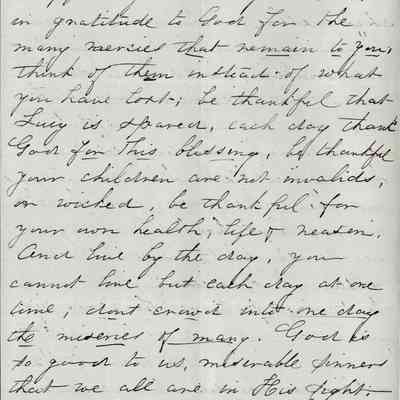 in gratitude to God for the
many mercies that remain to you,
think of them instead of what
you have lost; be thankful that
Lucy is spared, each day thank
God for this blessing, be thankful
your children are not invalids,
or wicked, be thankful for
your own health, life & reason.
And live by the day, you
cannot live but each day at one
time; dont crowd into one day
the miseries of many. God is
so good to us, miserable sinners
that we all are in His sight.